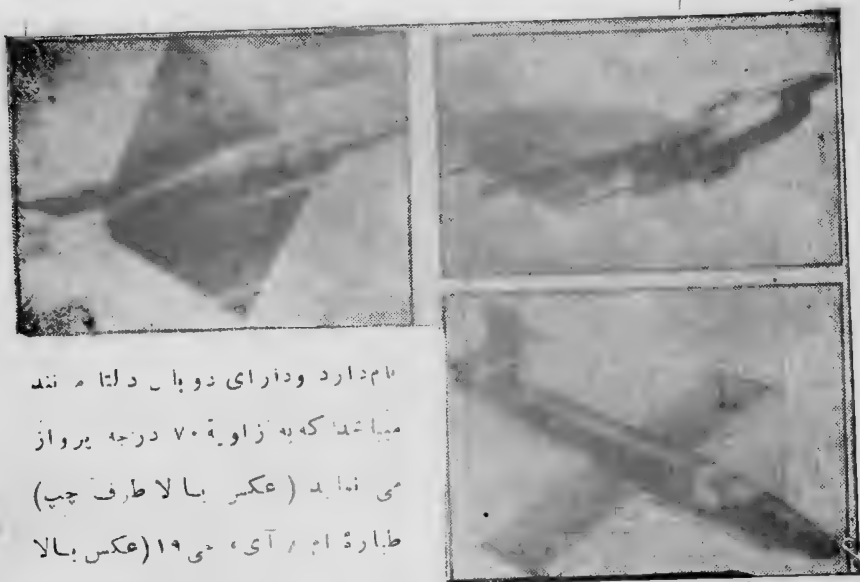 نام دارد ودارای دو بال دلتا مانند
میباشد که به زاویهٔ ۷۰ درجه پرواز
می نماید (عکس بالا طرف چپ)
طیارهٔ ام آی، ۱۹ (عکس بالا